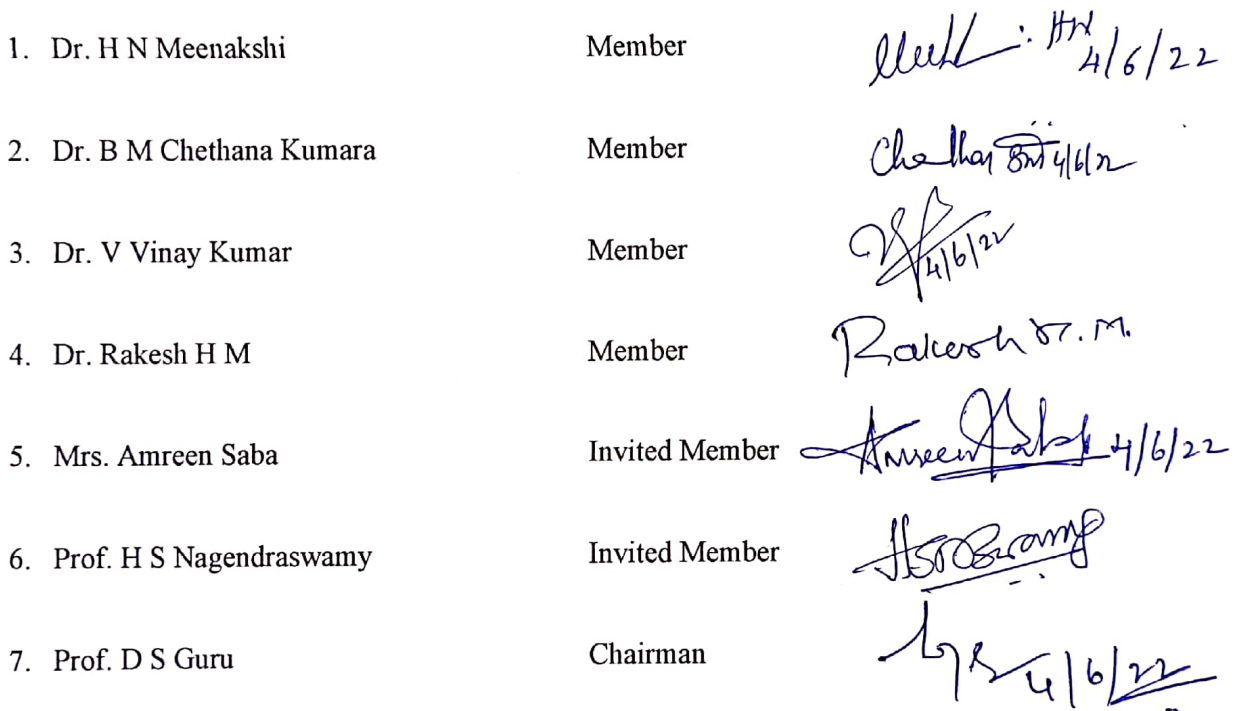 1. Dr. H N Meenakshi Member 4/6/22
2. Dr. B M Chethana Kumara Member 4/6/22
3. Dr. V Vinay Kumar Member 4/6/22
4. Dr. Rakesh H M Member Rakesh H. M.
5. Mrs. Amreen Saba Invited Member Amreen Saba 4/6/22
6. Prof. H S Nagendraswamy Invited Member
7. Prof. D S Guru Chairman 4/6/22